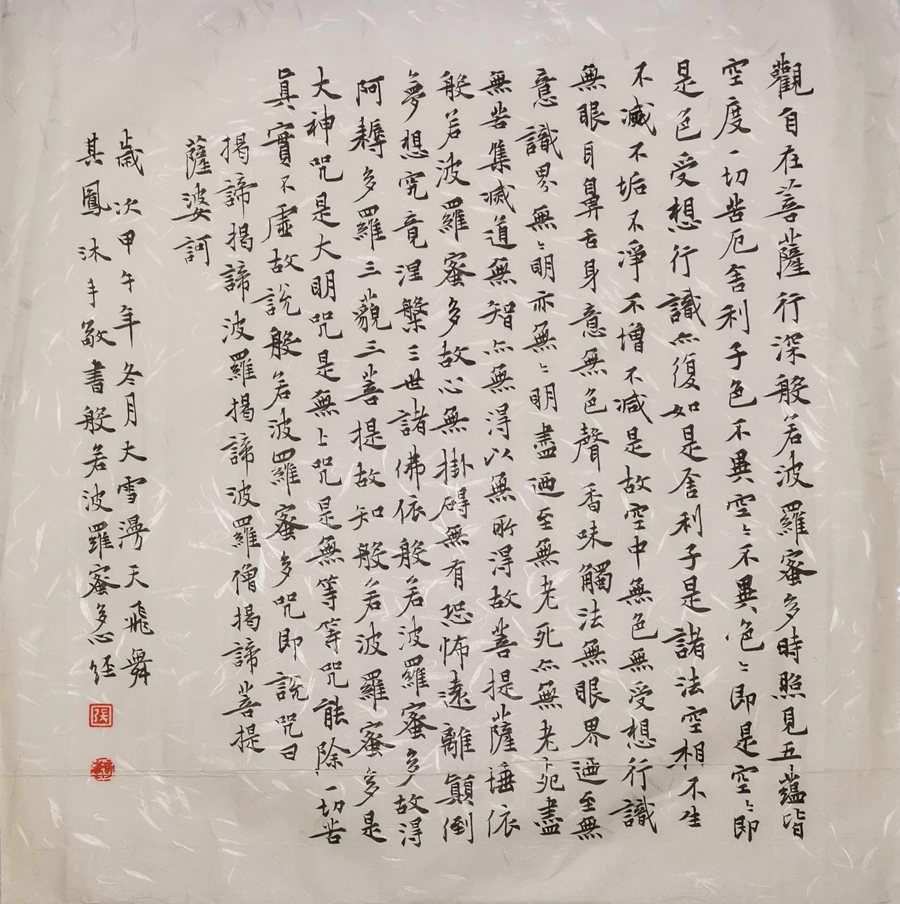 觀自在菩薩行深般若波羅蜜多時照見五蘊皆
空度一切苦厄舍利子色不異空〻不異色〻即是空〻即
是色受想行識亦復如是舍利子是諸法空相不生
不滅不垢不淨不增不減是故空中無色無受想行識
無眼耳鼻舌身意無色聲香味觸法無眼界迺至無
意識界無〻明亦無〻明盡迺至無老死亦無老死盡
無苦集滅道無智亦無得以無所得故菩提薩埵依
般若波羅蜜多故心無掛碍無有恐怖遠離顛倒
夢想究竟涅槃三世諸佛依般若波羅蜜多故得
阿耨多羅三藐三菩提故知般若波羅蜜多是
大神咒是大明咒是無上咒是無等等咒能除一切苦
真實不虛故說般若波羅蜜多咒即說咒曰
揭諦揭諦波羅揭諦波羅僧揭諦菩提
薩婆訶
歲次甲午年冬月大雪漫天飛舞
其鳳沐手敬書般若波羅蜜多心經
張